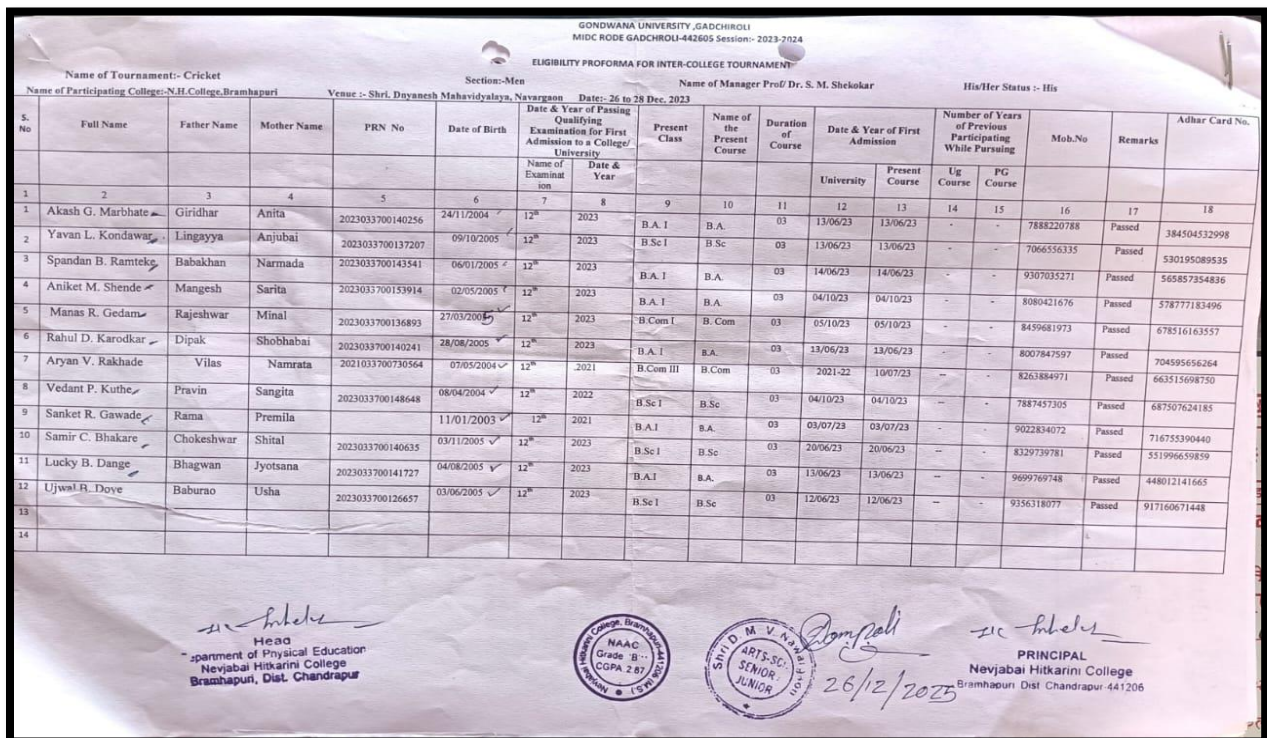 GONDWANA UNIVERSITY ,GADCHIROLI
MIDC RODE GADCHROLI-442605 Session:- 2023-2024
ELIGIBILITY PROFORMA FOR INTER-COLLEGE TOURNAMENT
Name of Tournament:- Cricket Section:-Men Name of Manager Prof/ Dr. S. M. Shekokar His/Her Status :- His
Name of Participating College:-N.H.College,Bramhapuri Venue :- Shri. Dnyanesh Mahavidyalaya, Navargaon Date:- 26 to 28 Dec. 2023
S. No Full Name Father Name Mother Name PRN No Date of Birth Date & Year of Passing Qualifying Examination for First Admission to a College/ University Present Class Name of the Present Course Duration of Course Date & Year of First Admission Number of Years of Previous Participating While Pursuing Mob.No Remarks Adhar Card No.
Name of Examinat ion Date & Year University Present Course Ug Course PG Course
1 2 3 4 5 6 7 8 9 10 11 12 13 14 15 16 17 18
1 Akash G. Marbhate Giridhar Anita 2023033700140256 24/11/2004 12th 2023 B.A. I B.A. 03 13/06/23 13/06/23 - - 7888220788 Passed 384504532998
2 Yavan L. Kondawar Lingayya Anjubai 2023033700137207 09/10/2005 12th 2023 B.Sc I B.Sc 03 13/06/23 13/06/23 - - 7066556335 Passed 530195089535
3 Spandan B. Ramteke Babakhan Narmada 2023033700143541 06/01/2005 12th 2023 B.A. I B.A. 03 14/06/23 14/06/23 - - 9307035271 Passed 565857354836
4 Aniket M. Shende Mangesh Sarita 2023033700153914 02/05/2005 12th 2023 B.A. I B.A. 03 04/10/23 04/10/23 - - 8080421676 Passed 578777183496
5 Manas R. Gedam Rajeshwar Minal 2023033700136893 27/03/2005 12th 2023 B.Com I B. Com 03 05/10/23 05/10/23 - - 8459681973 Passed 678516163557
6 Rahul D. Karodkar Dipak Shobhabai 2023033700140241 28/08/2005 12th 2023 B.A. I B.A. 03 13/06/23 13/06/23 - - 8007847597 Passed 704595656264
7 Aryan V. Rakhade Vilas Namrata 2021033700730564 07/05/2004 12th 2021 B.Com III B.Com 03 2021-22 10/07/23 -- - 8263884971 Passed 663515698750
8 Vedant P. Kuthe Pravin Sangita 2023033700148648 08/04/2004 12th 2022 B.Sc I B.Sc 03 04/10/23 04/10/23 -- - 7887457305 Passed 687507624185
9 Sanket R. Gawade Rama Premila 11/01/2003 12th 2021 B.A.I B.A. 03 03/07/23 03/07/23 -- - 9022834072 Passed 716755390440
10 Samir C. Bhakare Chokeshwar Shital 2023033700140635 03/11/2005 12th 2023 B.Sc I B.Sc 03 20/06/23 20/06/23 -- - 8329739781 Passed 551996659859
11 Lucky B. Dange Bhagwan Jyotsana 2023033700141727 04/08/2005 12th 2023 B.A.I B.A. 03 13/06/23 13/06/23 -- - 9699769748 Passed 448012141665
12 Ujwal B. Doye Baburao Usha 2023033700126657 03/06/2005 12th 2023 B.Sc I B.Sc 03 12/06/23 12/06/23 -- - 9356318077 Passed 917160671448
13
14
Head
Department of Physical Education
Nevjabai Hitkarini College
Bramhapuri, Dist. Chandrapur
Nevjabai Hitkarini College, Bramhapuri-441206 (M.S.)
NAAC
Grade 'B'
CGPA 2.67
Shri D. M. V. Nawargaon
ARTS-SCI.
SENIOR
JUNIOR
26/12/2025
PRINCIPAL
Nevjabai Hitkarini College
Bramhapuri Dist Chandrapur-441206